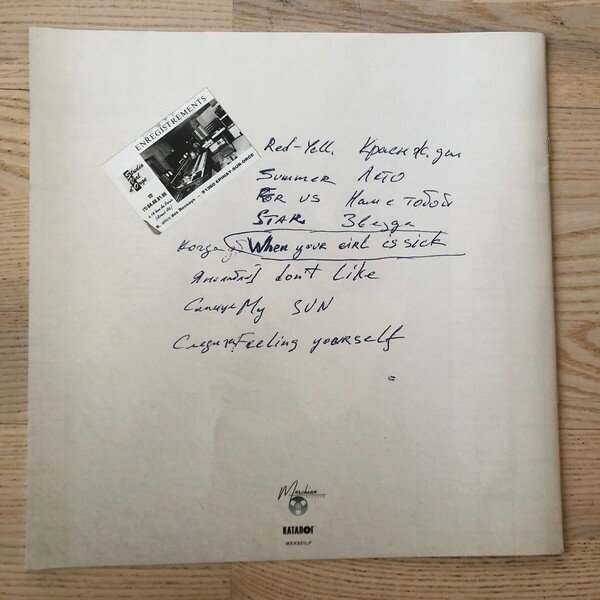 ENREGISTREMENTS
Studio
Red-Yell. Красн Ж. дни
Summer Лето
For us Нам с тобой
STAR Звезда
Когда When your girl is sick
I don't like
Солнце My SUN
Следи Feeling yourself
Maschina
RECORDS
КАТАЛОГ
MKK001LP